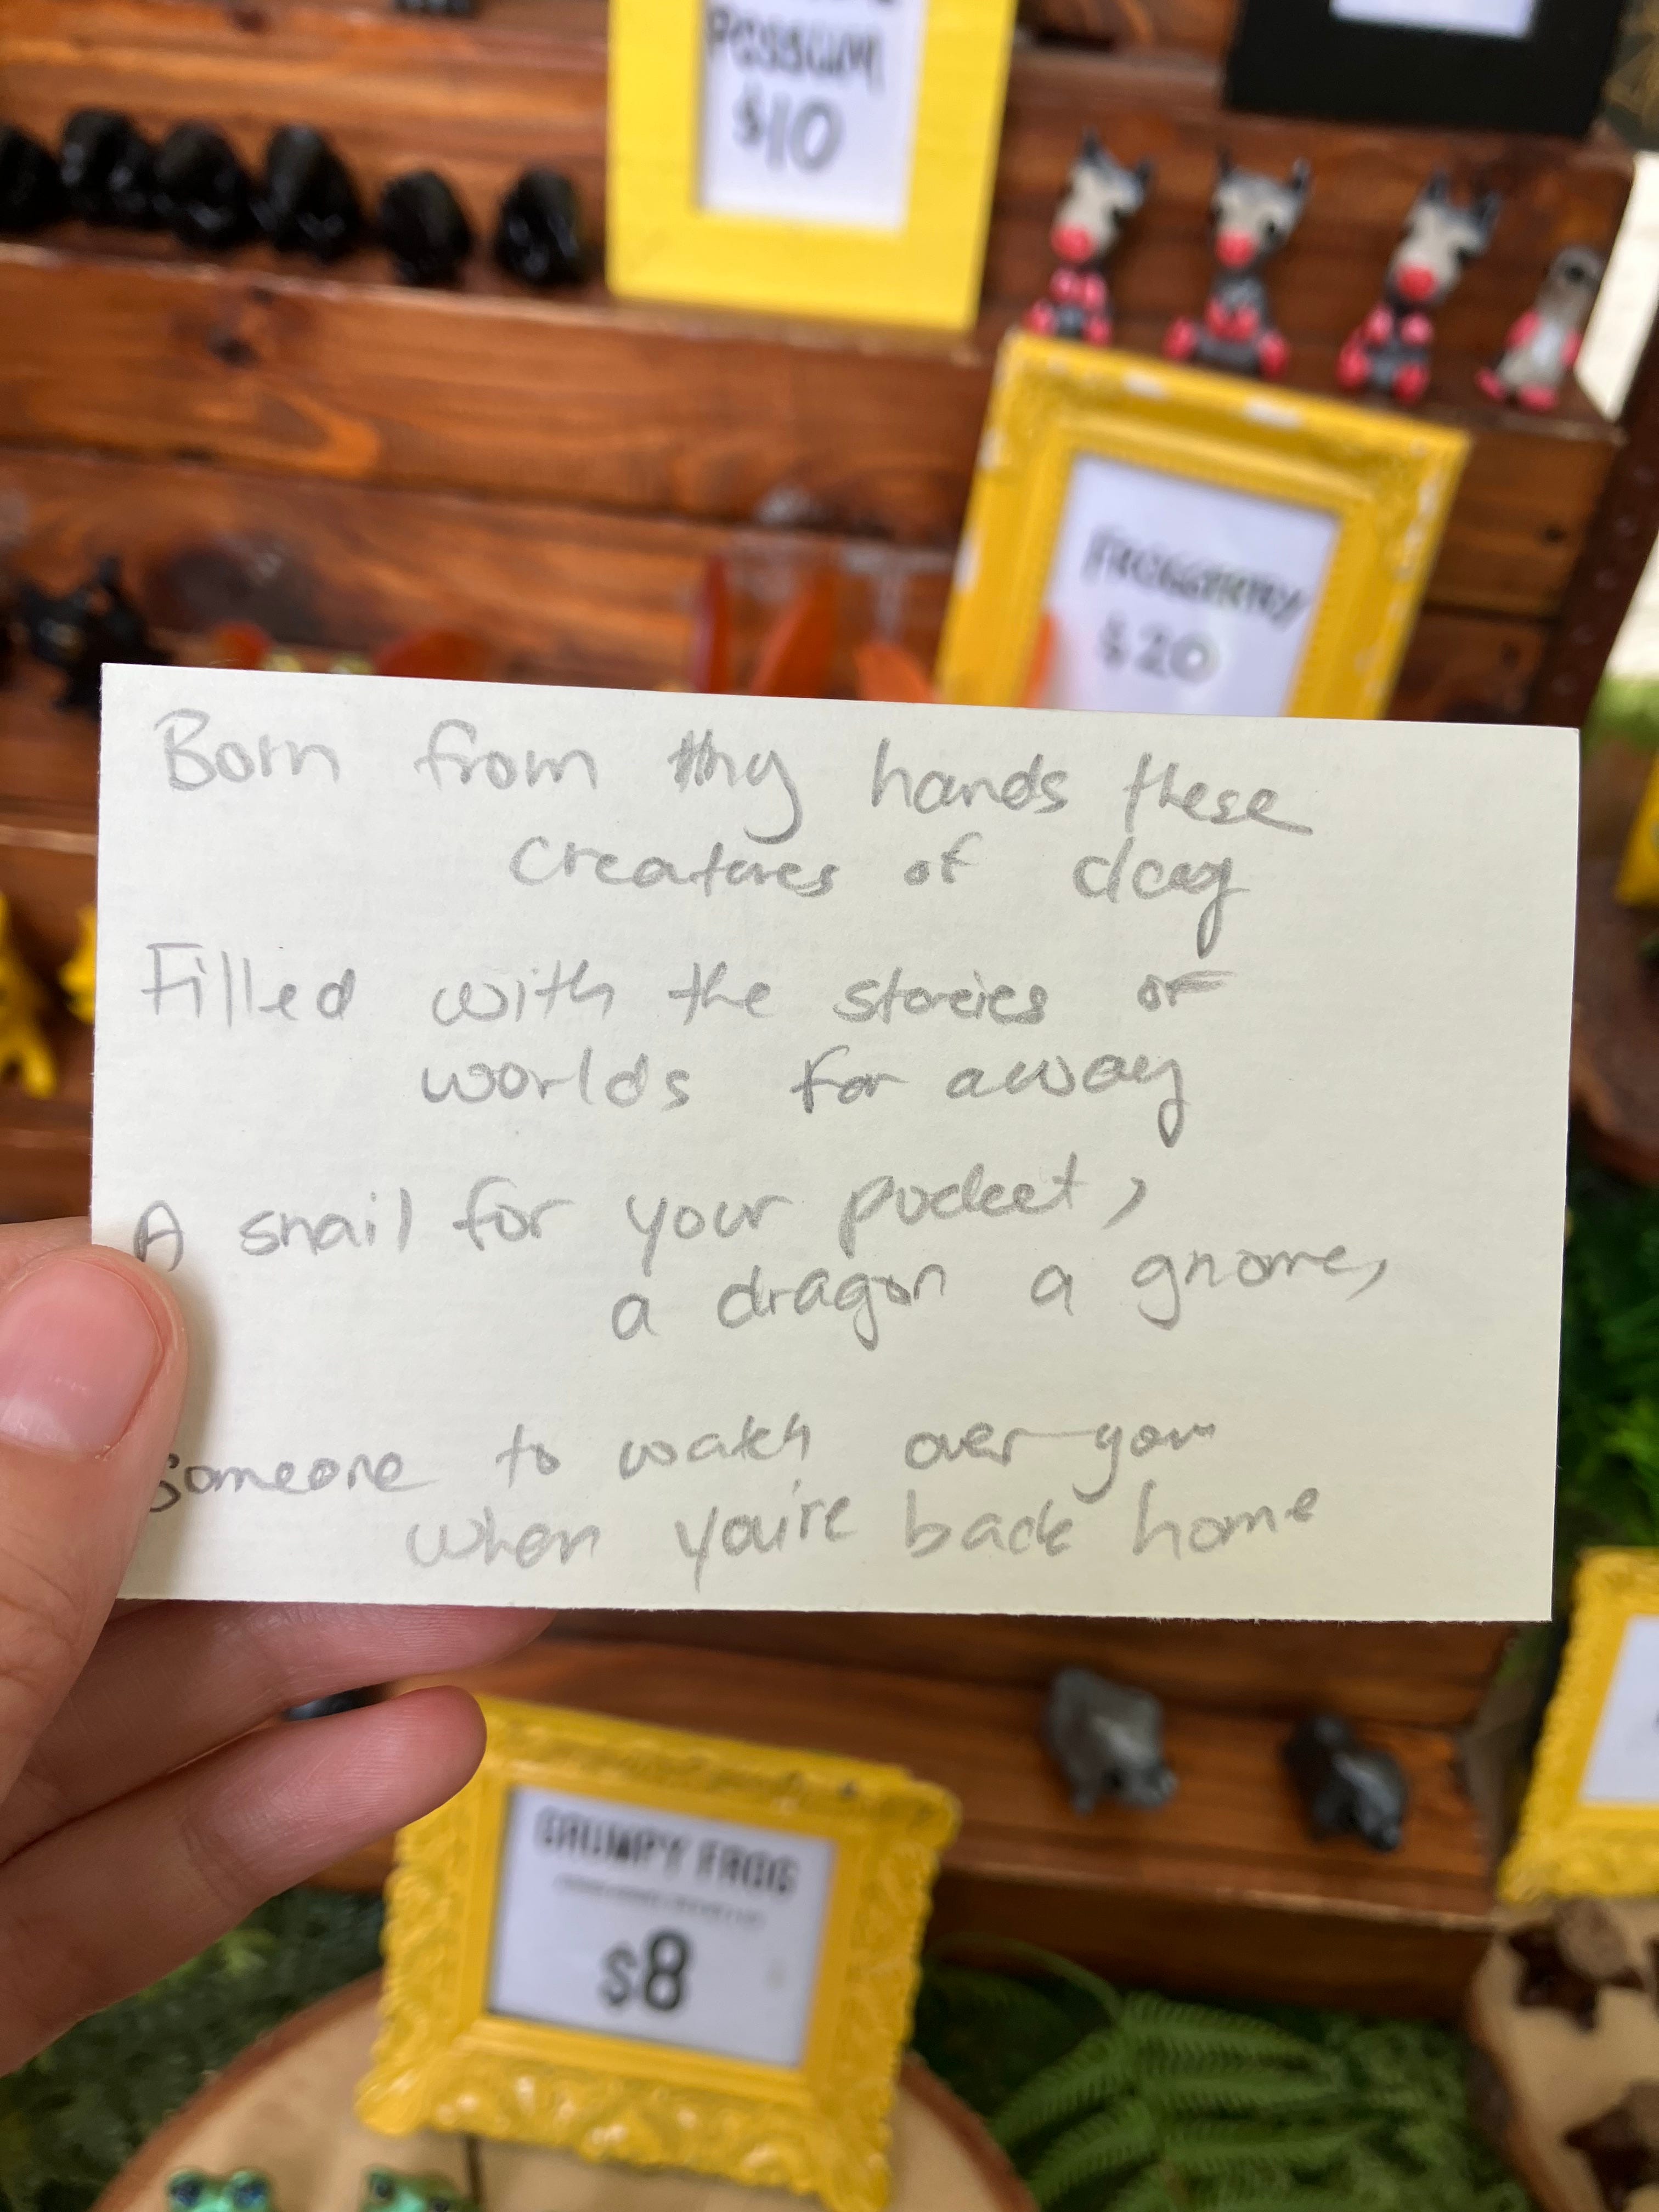 POSSUM
$10
$20
Born from thy hands these
creatures of clay
Filled with the stories of
worlds far away
A snail for your pocket,
a dragon a gnome,
Someone to watch over you
when you're back home
GRUMPY FROG
$8